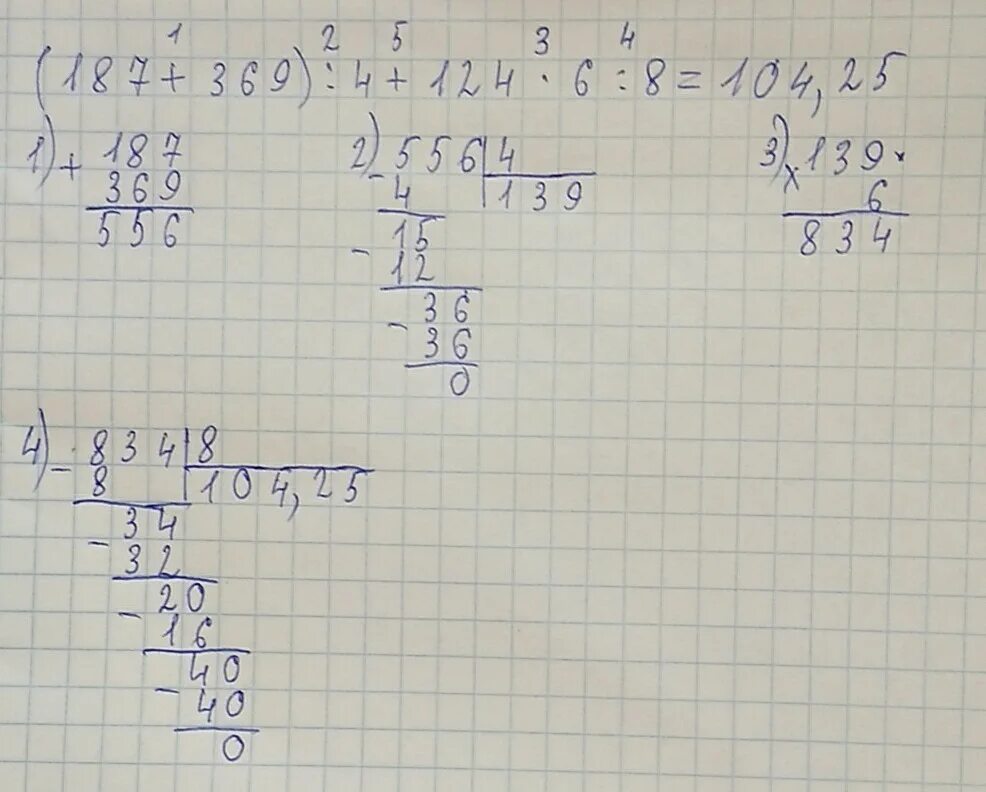 1 2 5 3 4
(187 + 369) : 4 + 124 · 6 : 8 = 104,25
1) + 187
369
556
2) - 556 4
4 139
- 15
12
- 36
36
0
3) x 139 ·
6
834
4) - 834 8
8 104,25
- 34
32
- 20
16
- 40
40
0